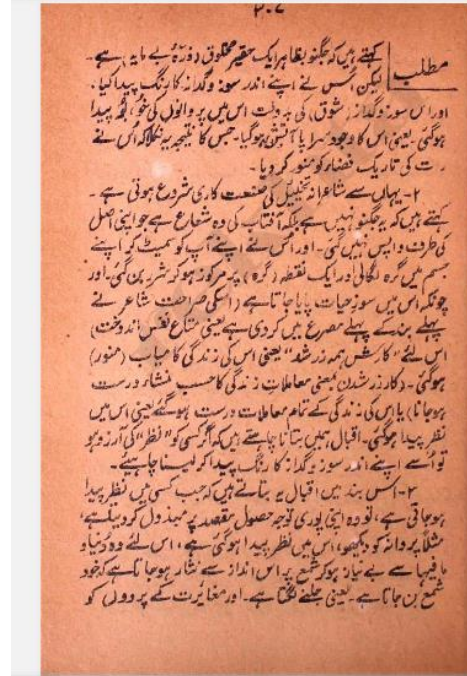 ۳۰۷
مطلب
کہتے ہیں کہ جگنو بظاہر ایک حقیر مخلوق (ذرّۂ بے مایہ) ہے۔
لیکن اُس نے اپنے اندر سوز و گداز کا رنگ پیدا کیا،
اور اس سوز و گداز (شوق) کی بدولت اس میں پروانوں کی خُو، بُو پیدا
ہوگئی۔ یعنی اس کا وجود سراپا آتش ہوگیا۔ جس کا نتیجہ یہ نکلا کہ اُس نے
رات کی تاریک فضاء کو منور کر دیا۔
۲۔ یہاں سے شاعرانہ تخییل کی صنعت کاری شروع ہوتی ہے۔
کہتے ہیں کہ یہ جگنو نہیں ہے بلکہ آفتاب کی وہ شعاع ہے جو اپنی اصل
کی طرف واپس نہیں گئی۔ اور اُس نے اپنے آپ کو سمیٹ کر اپنے
جسم میں گرہ لگالی اور ایک نقطہ (گرہ) پر مرکوز ہوکر شرر بن گئی۔ اور
چونکہ اس میں سوزِ حیات پایا جاتا ہے (اسکی صراحت شاعر نے
پہلے بند کے پہلے مصرع میں کردی ہے یعنی متاعِ نفس اندوخت)
اس لئے "کارش ہمہ زر شد" یعنی اس کی زندگی کامیاب (منور)
ہوگئی۔ (کار زر شدن بمعنی معاملاتِ زندگی کا حسبِ منشاء درست
ہوجانا) یا اس کی زندگی کے تمام معاملات درست ہوگئے یعنی اس میں
نظر پیدا ہوگئی۔ اقبال ہمیں بتانا چاہتے ہیں کہ اگر کسی کو "نظر" کی آرزو ہو
تو اُسے اپنے اندر سوز و گداز کا رنگ پیدا کر لینا چاہیئے۔
۳۔ اس بند میں اقبال یہ بتاتے ہیں کہ جب کسی میں نظر پیدا
ہوجاتی ہے، تو وہ اپنی پوری توجہ حصولِ مقصد پر مبذول کر دیتا ہے،
مثلاً پروانہ کو دیکھو، اس میں نظر پیدا ہوگئی ہے، اس لئے وہ دنیا و
مافیہا سے بے نیاز ہوکر شمع پر اس انداز سے نثار ہوجاتا ہے کہ خود
شمع بن جاتا ہے۔ یعنی جلنے لگتا ہے۔ اور مغائرت کے پردوں کو